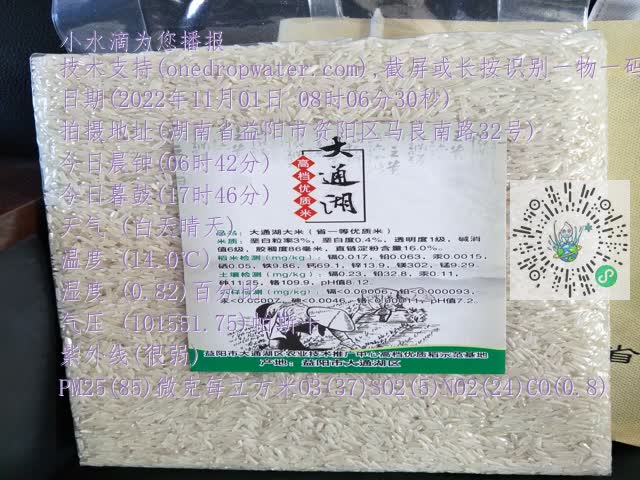 小水滴为您播报
技术支持(onedropwater.com),截屏或长按识别一物一码
日期(2022年11月01日 08时06分30秒)
拍摄地址(湖南省益阳市资阳区马良南路32号)
今日晨钟(06时42分)
今日暮鼓(17时46分)
天气(白天晴天)
温度(14.0℃)
湿度(0.82)百分
气压(101551.75)帕斯卡
紫外线(很弱)
PM25(85)微克每立方米O3(37)SO2(5)NO2(24)CO(0.8)
大通湖
高档优质米
品名:大通湖大米(省一等优质米)
米质:垩白粒率3%,垩白度0.4%,透明度1级,碱消
值6级,胶稠度86毫米,直链淀粉含量16.0%。
稻米检测(mg/kg):镉0.017,铅0.063,汞0.0015,
硒0.05,铁9.86,钙69.1,锌13.9,镁302,锰9.29.
土壤检测(mg/kg):镉0.23,铅32.8,汞0.11,
砷11.25,铬109.9,pH值8.12.
检测(mg/kg):镉<0.00006,铅<0.000093,
汞<0.00007,砷<0.0046,铬<0.00011,pH值7.2.
益阳市大通湖区农业技术推广中心高档优质稻示范基地
产地:益阳市大通湖区